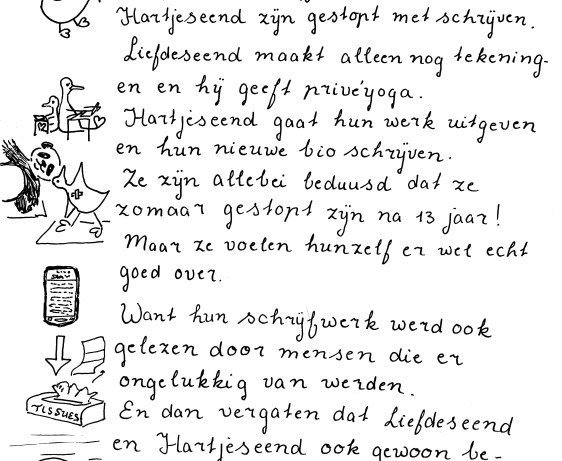 Hartjeseend zijn gestopt met schrijven.
Liefdeseend maakt alleen nog tekening-
en en hij geeft privéyoga.
Hartjeseend gaat hun werk uitgeven
en hun nieuwe bio schrijven.
Ze zijn allebei beduusd dat ze
zomaar gestopt zijn na 13 jaar!
Maar ze voelen hunzelf er wel echt
goed over.
Want hun schrijfwerk werd ook
gelezen door mensen die er
ongelukkig van werden.
TISSUES
En dan vergaten dat Liefdeseend
en Hartjeseend ook gewoon be-